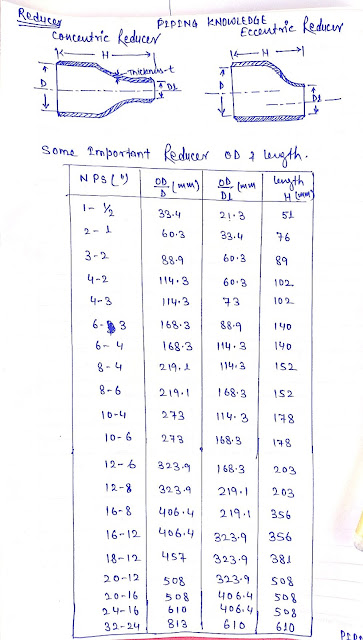 Reducer
PIPING KNOWLEDGE
Concentric Reducer
Eccentric Reducer
H
H
Thickness-t
D
D1
D
D1
Some Important Reducer OD & length.
NPS (") OD/D (mm) OD/D1 (mm length H (mm)
1- 1/2 33.4 21.3 51
2-1 60.3 33.4 76
3-2 88.9 60.3 89
4-2 114.3 60.3 102
4-3 114.3 73 102
6-3 168.3 88.9 140
6-4 168.3 114.3 140
8-4 219.1 114.3 152
8-6 219.1 168.3 152
10-4 273 114.3 178
10-6 273 168.3 178
12-6 323.9 168.3 203
12-8 323.9 219.1 203
16-8 406.4 219.1 356
16-12 406.4 323.9 356
18-12 457 323.9 381
20-12 508 323.9 508
20-16 508 406.4 508
24-16 610 406.4 508
32-24 813 610 610